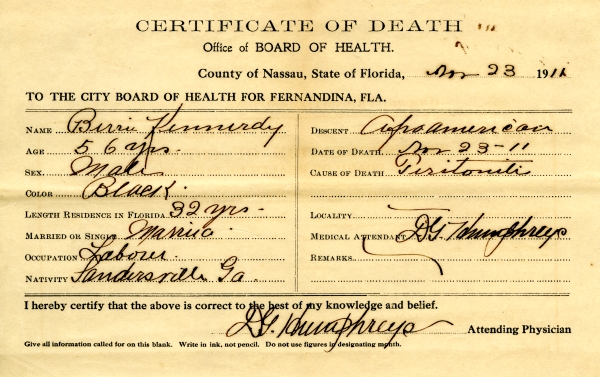 CERTIFICATE OF DEATH
Office of BOARD OF HEALTH.
County of Nassau, State of Florida, Nov 23 1911
TO THE CITY BOARD OF HEALTH FOR FERNANDINA, FLA.
NAME Berrie Kennerdy
AGE 56 yrs.
SEX Male
COLOR Black.
LENGTH RESIDENCE IN FLORIDA 32 yrs.
MARRIED OR SINGLE Married
OCCUPATION Laborer
NATIVITY Sandersville Ga
DESCENT Afroamerican
DATE OF DEATH Nov 23-11
CAUSE OF DEATH Peritonitis
LOCALITY
MEDICAL ATTENDANT D.G. Humphreys
REMARKS
I hereby certify that the above is correct to the best of my knowledge and belief.
D.G. Humphreys Attending Physician
Give all information called for on this blank. Write in ink, not pencil. Do not use figures in designating month.